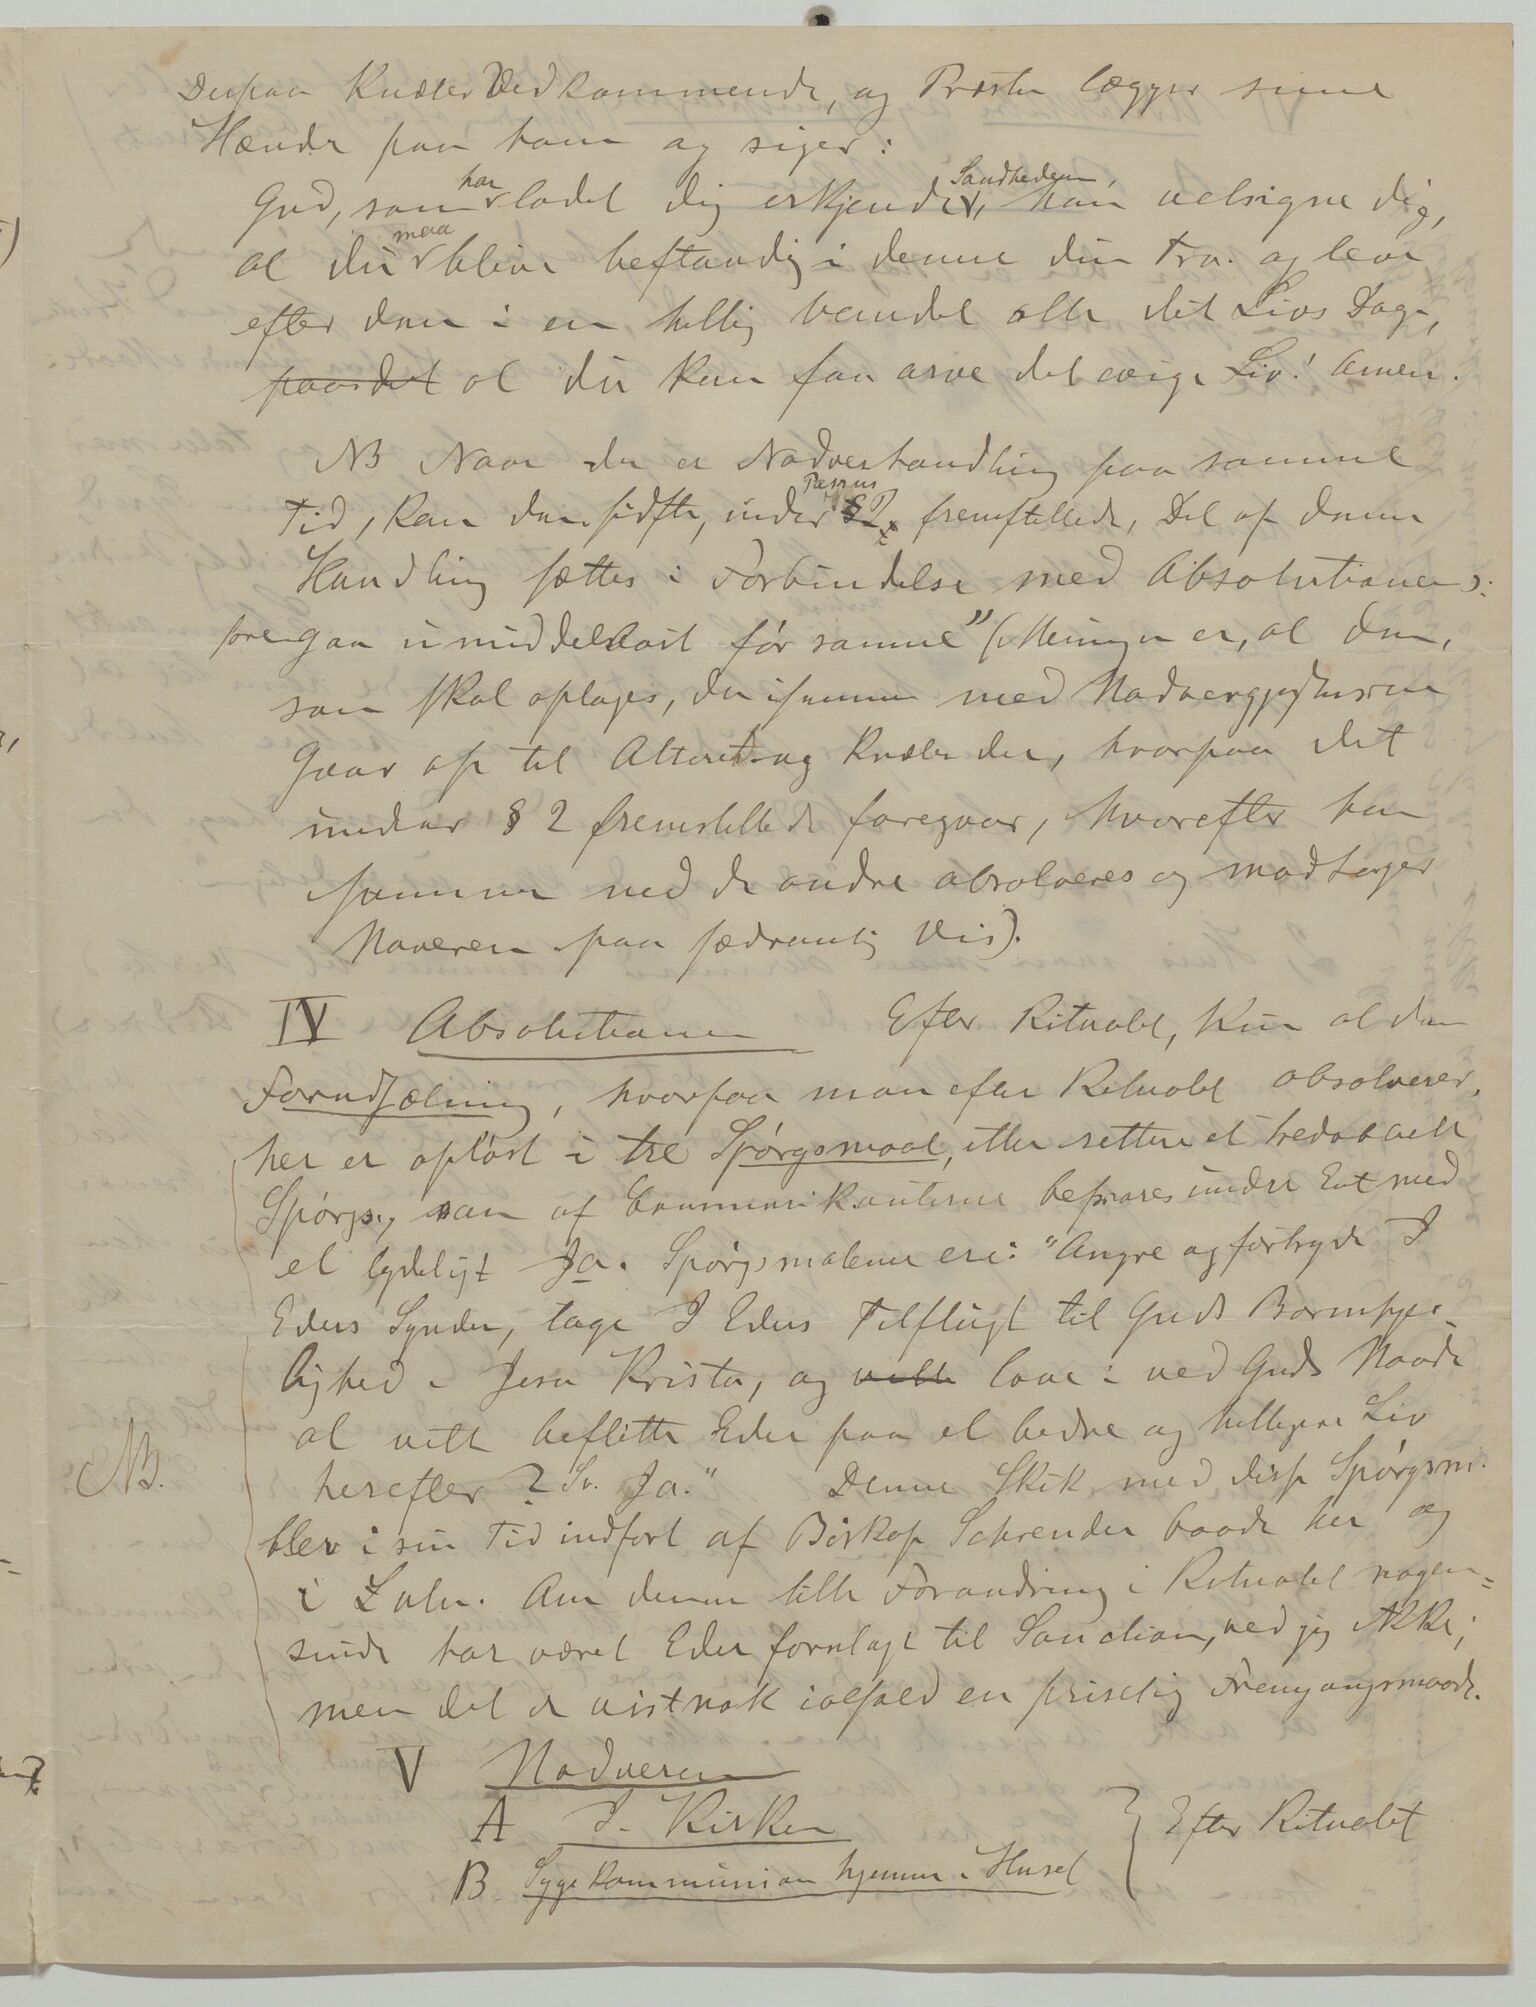 Derpaa Knæler Vedkommende, og Præsten lægger sine
Hænder paa ham og siger:
Gud, som har ladet dig erkjende Sandheden, han velsigne dig,
at du maa blive bestandig i denne din Tro og leve
efter den i en hellig Vandel alle dit Livs Dage,
paa det at du kan faa arve det evige Liv! Amen.
NB Naar der er Nadverhandling paa samme
Tid, kan den sidste, under Passus 2 fremstillede, Del af denne
Handling sættes i Forbindelse med Absolutionen ɔ:
foregaa umiddelbart før samme" (Meningen er, at den,
som skal optages, da isammen med Nadvergjesterne
Gaar op til Alteret og Knæler der, hvorpaa det
under § 2 fremstillede foregaar, hvorefter han
sammen med de andre absolveres og modtager
Naveren paa sædvanlig Vis).
IV Absolutionen Efter Ritualet, Kun at den
Forudsætning, hvorpaa man efter Ritualet absolverer,
her er opløst i tre Spørgsmaal, eller rettere et tredobbelt
Spørgs., som af Communikanterne besvares under Eet med
et lydeligt Ja. Spørgsmalene ere: "Angre og fortryde I
Eders Synder, tage I Eders Tilflugt til Guds Barmhjer-
lighed i Jesu Kristo, og ville love i ved Guds Naade
at ville beflitte Eder paa et bedre og helligere Liv
herefter? Sv. Ja." Denne Skik med disse Spørgsm.
NB.
blev i sin Tid indført af Biskop Schreuder baade her og
i Zulu. Om denne lille Forandring i Ritualet nogen-
sinde har været Eder forelagt til Sanction, ved jeg ikke;
men det er vistnok ialfald en priselig Fremgangsmaade.
V Nadveren
A I Kirken
B Sygekommunion hjemme i Huset
} Efter Ritualet